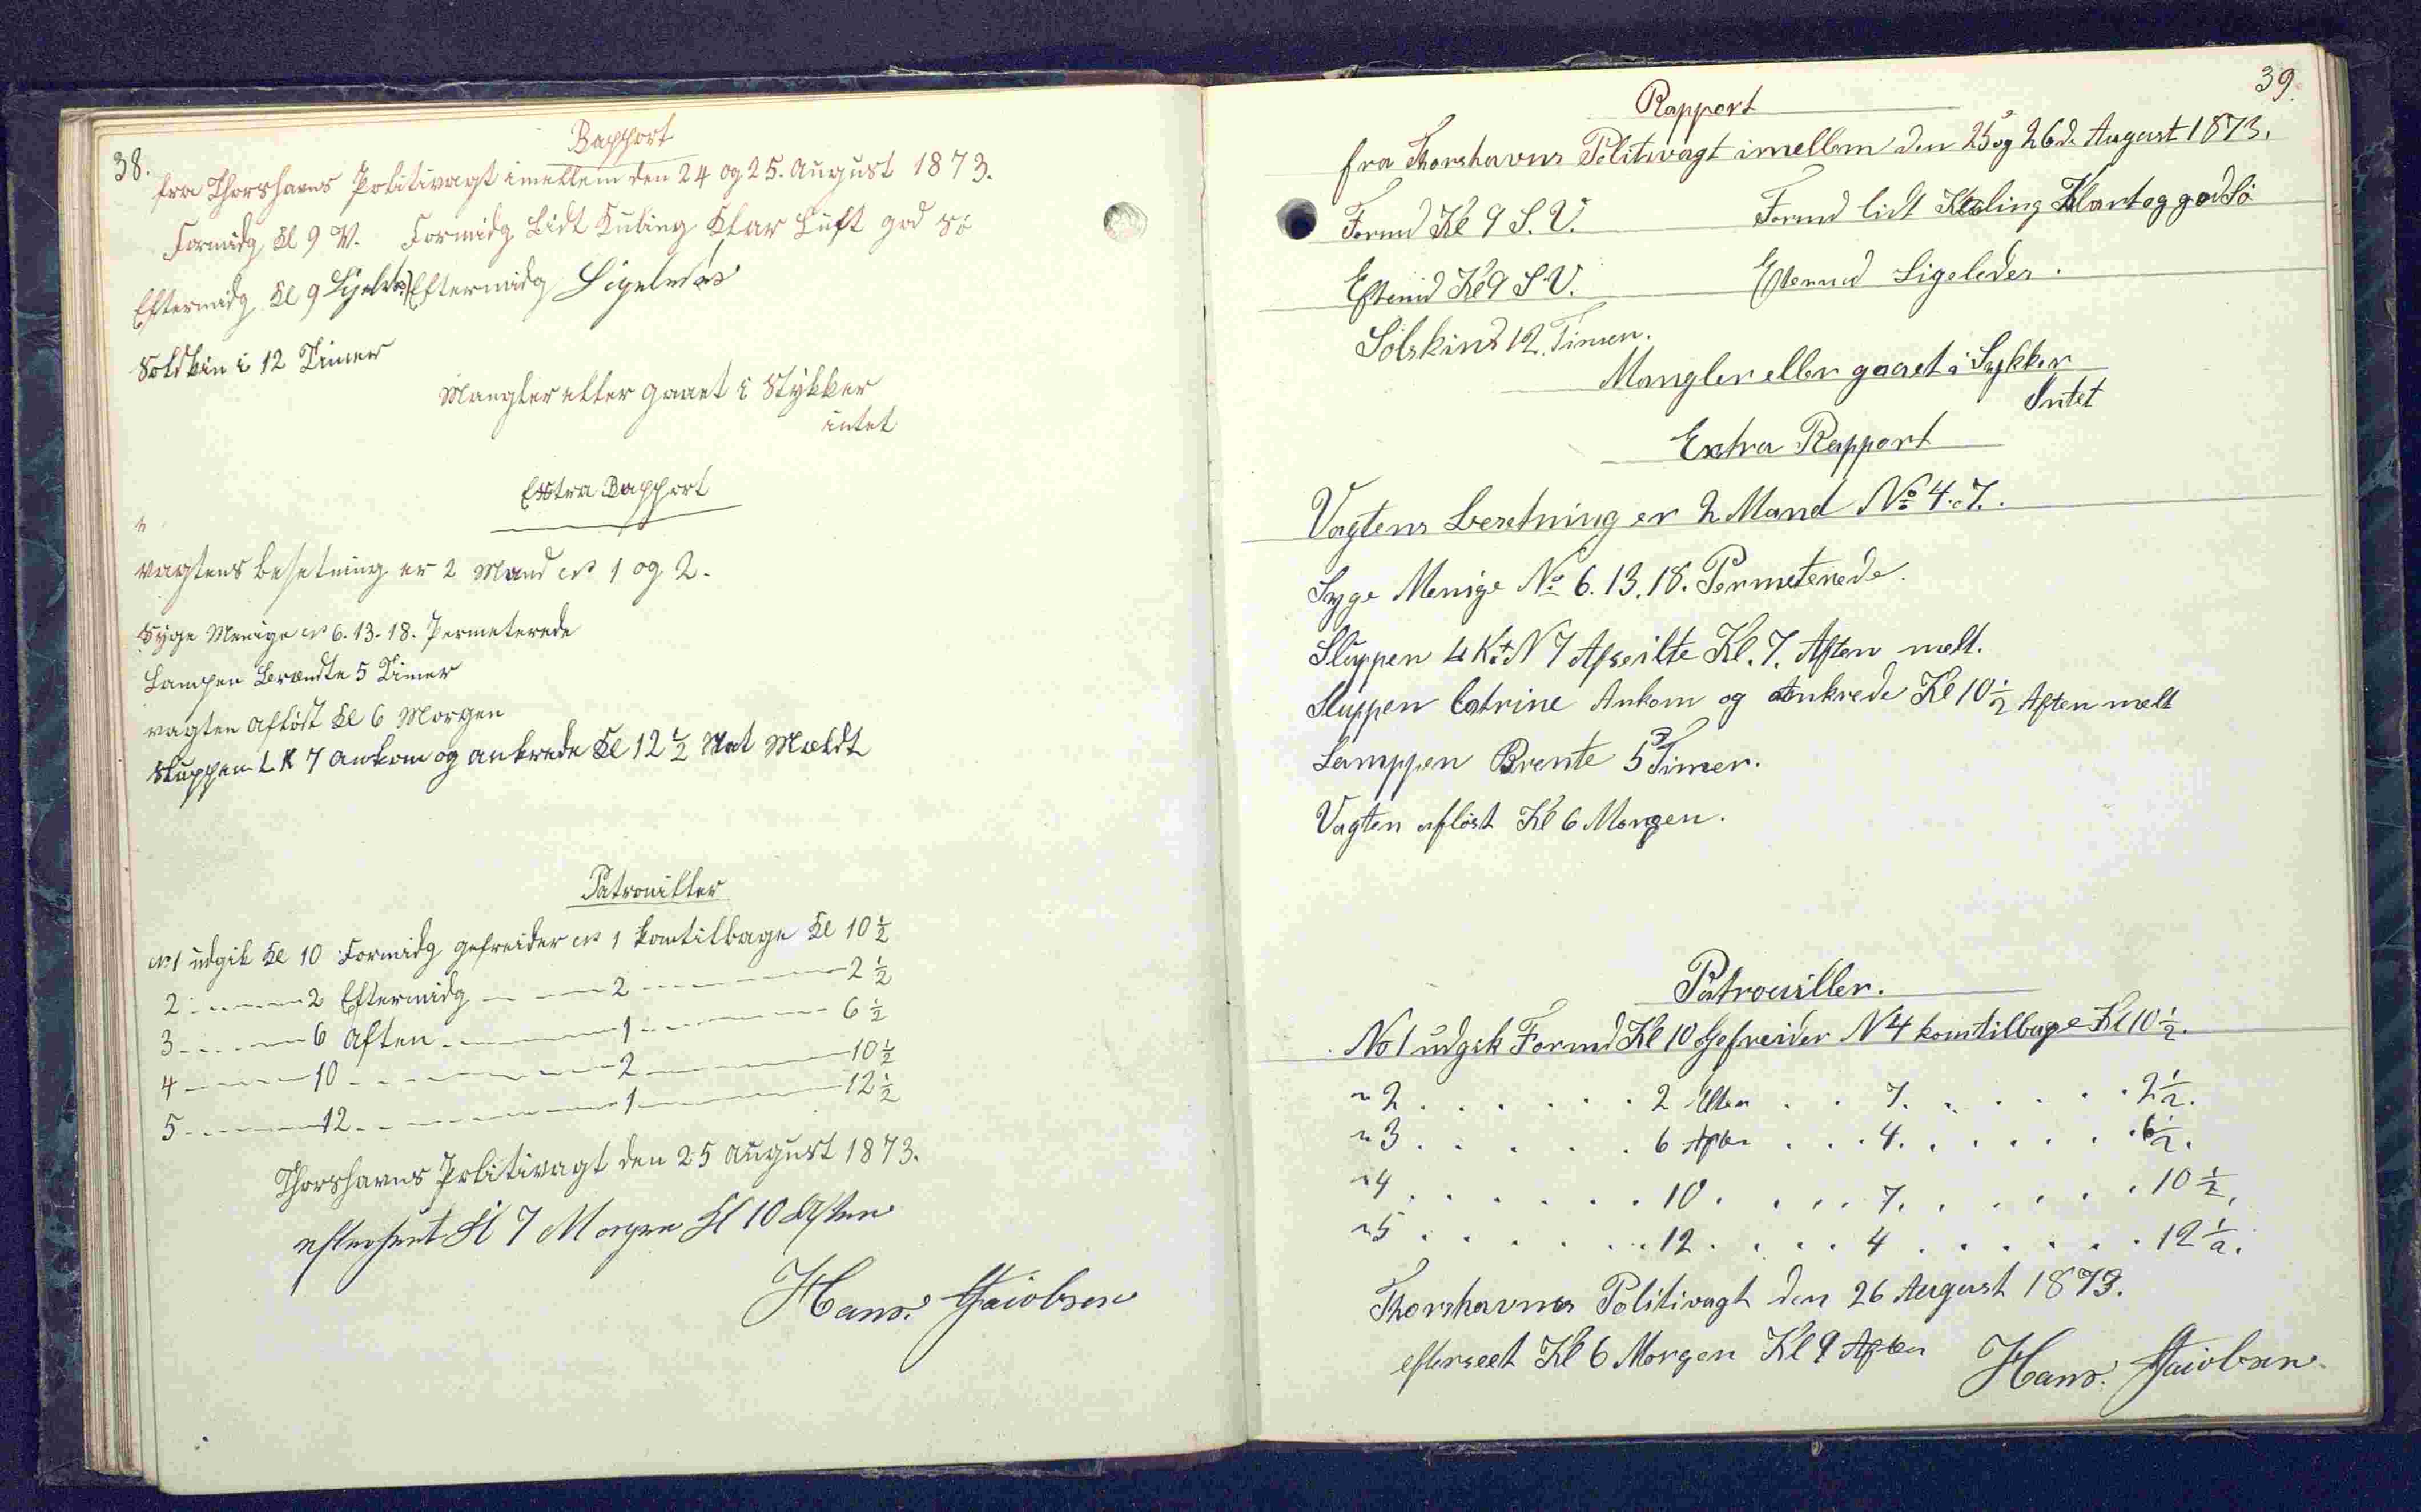 38.
Rapport
fra Thorshavns Politivagt imellem den 24 og 25. August 1873.
Formidg Kl 9 V. Formidg Lidt Kuling Klar Luft god Sö
Eftermidg Kl 9 Ligeledes Eftermidg Ligeledes
Solskin i 12 Timer
Mangler eller gaaet i Stykker
intet
Extra Rapport
vagtens besetning er 2 Mand No 1 og 2.
Syge Menige No 6. 13. 18. Permeterede
Lampen Brændte 5 Timer
vagten aflöst Kl 6 Morgen
Sluppen L K 7 ankom og ankrede Kl 12 1/2 Nat Meldt
Patrouiller
No 1 udgik Kl 10 Formidg gefreider No 1 komtilbage Kl 10 1/2
2 - - - - - 2 Eftermidg - - - - 2 - - - - - - 2 1/2
3 - - - - - 6 Aften - - - - - 1 - - - - - - 6 1/2
4 - - - - - 10 - - - - - - - 2 - - - - - - 10 1/2
5 - - - - - 12 - - - - - - - 1 - - - - - - 12 1/2
Thorshavns Politivagt den 25 August 1873.
efterseet Kl 7 Morgen Kl 10 Aften
Hans. Jacobsen
39.
Rapport
fra Thorshavns Politivagt imellem den 25 og 26 d. August 1873.
Formd Kl 9 S. V. Formd lidt Kuling Klart og god Sö
Eftemd Kl 9 S. V. Eftermd Ligeledes.
Solskind 12 Timer.
Mangler eller gaaet i Sykker
Intet
Extra Rapport
Vagtens Besetning er 2 Mand No 4. 7.
Syge Menige No 6. 13. 18. Permeterede.
Sluppen L K N 7 Afseilte Kl. 7. Aften melt.
Sluppen Catrine Ankom og Ankrede Kl 10 1/2 Aften melt
Lamppen Brente 5 Timer.
Vagten aflöst Kl 6 Morgen.
Patrouiller.
No 1 udgik Formd Kl 10 Gefreider N 4 komtilbage Kl 10 1/2.
" 2 . . . . . . 2 Eften . . 7. . . . . . . 2 1/2.
" 3 . . . . . 6 Aften . . . 4. . . . . . . 6 1/2.
" 4 . . . . . . 10. . . . . 7. . . . . . . 10 1/2.
" 5 . . . . . . 12. . . . . 4 . . . . . . 12 1/2.
Thorshavns Politivagt den 26 August 1873.
efterseet Kl 6 Morgen Kl 9 Aften
Hans. Jacobsen